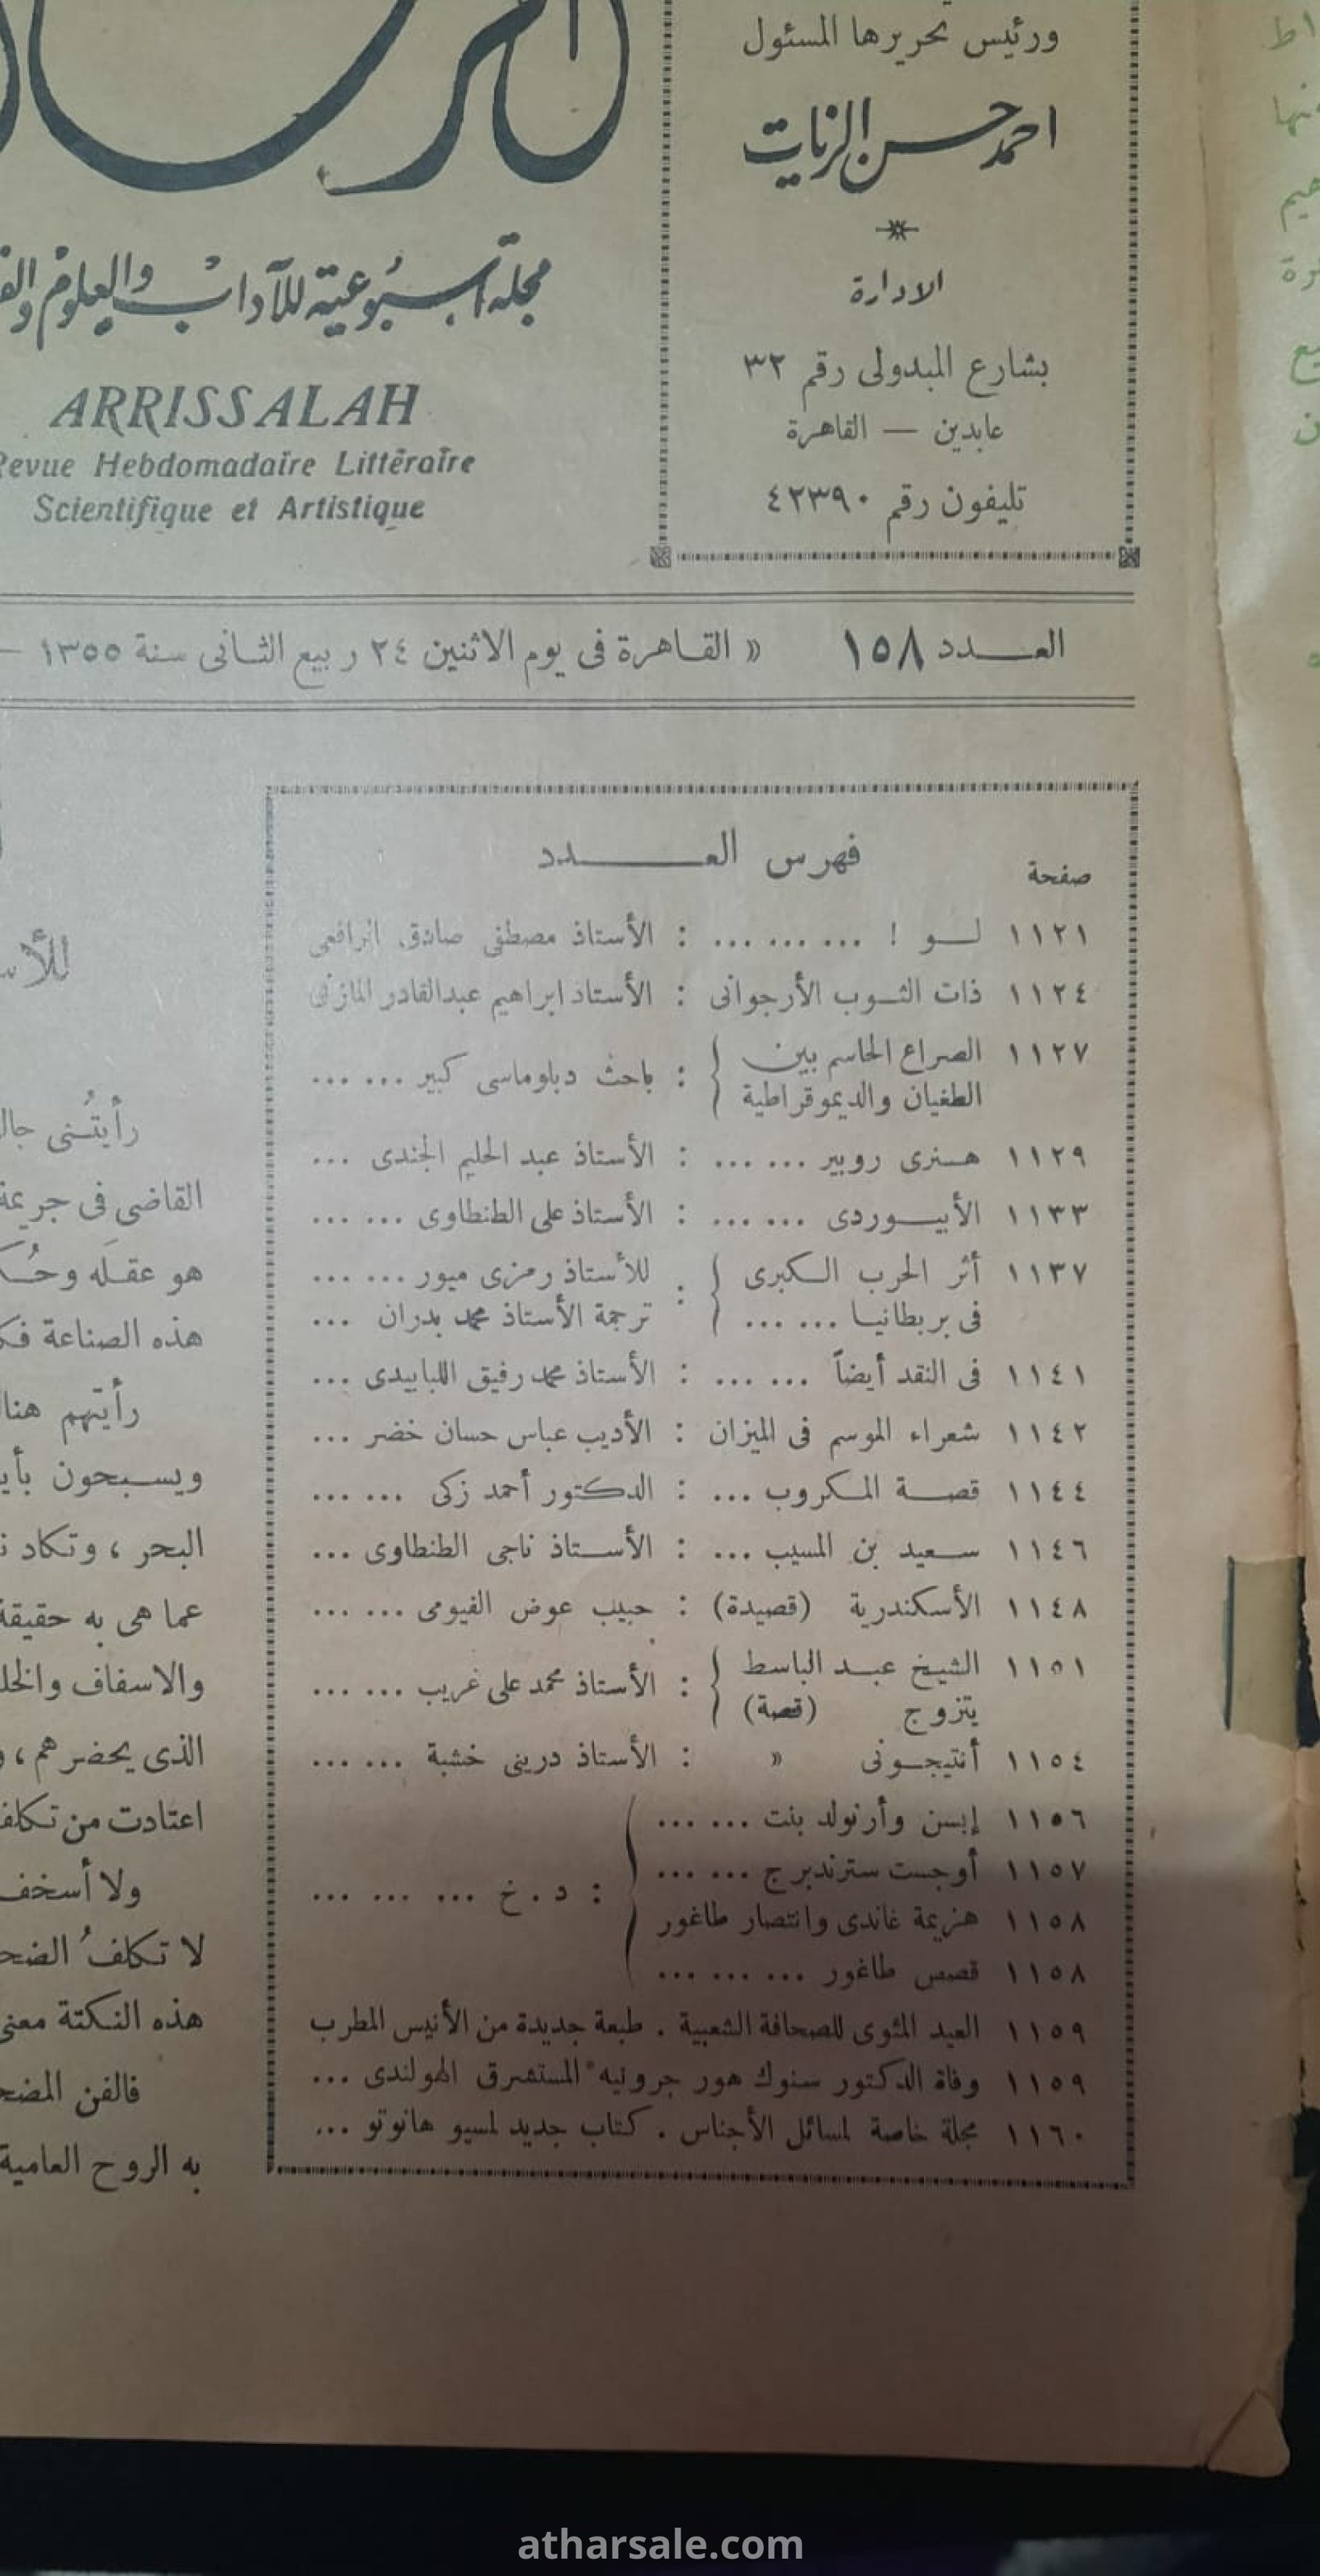 ورئيس تحريرها المسئول
احمد حسن الزيات
الادارة
بشارع المبدولى رقم ٣٢
عابدين — القاهرة
تليفون رقم ٤٢٣٩٠
مجلة أسبوعية للآداب والعلوم
ARRISSALAH
Revue Hebdomadaire Littéraire
Scientifique et Artistique
العـــدد ١٥٨ « القاهرة فى يوم الاثنين ٢٤ ربيع الثانى سنة ١٣٥٥ —
فهرس العـــدد
صفحة
١١٢١ لــو ! ... ... ... : الأستاذ مصطفى صادق الرافعى
١١٢٤ ذات الثوب الأرجوانى : الأستاذ ابراهيم عبدالقادر المازنى
١١٢٧ الصراع الحاسم بين
الطغيان والديموقراطية } : باحث دبلوماسى كبير ... ...
١١٢٩ هنرى روبير ... ... : الأستاذ عبد الحليم الجندى ...
١١٣٣ الأبيوردى ... ... : الأستاذ على الطنطاوى ... ...
١١٣٧ أثر الحرب الكبرى } : للأستاذ رمزى ميور ... ...
فى بريطانيا ... ... } ترجمة الأستاذ محمد بدران ...
١١٤١ فى النقد أيضاً ... ... : الأستاذ محمد رفيق اللبابيدى ...
١١٤٢ شعراء الموسم فى الميزان : الأديب عباس حسان خضر ...
١١٤٤ قصة المكروب ... : الدكتور أحمد زكى ... ...
١١٤٦ سعيد بن المسيب ... : الأستاذ ناجى الطنطاوى ...
١١٤٨ الأسكندرية (قصيدة) : حبيب عوض الفيومى ... ...
١١٥١ الشيخ عبد الباسط
يتزوج (قصة) } : الأستاذ محمد على غريب ... ...
١١٥٤ أنتيجونى » : الأستاذ درينى خشبة ... ...
١١٥٦ إبسن وأرنولد بنت ... ...
١١٥٧ أوجست سترندبرج ... ...
: د . خ ... ... ...
١١٥٨ هزيمة غاندى وانتصار طاغور
١١٥٨ قصص طاغور ... ... ...
١١٥٩ العيد المئوى للصحافة الشعبية . طبعة جديدة من الأنيس المطرب
١١٥٩ وفاة الدكتور سنوك هور جرونيه المستشرق الهولندى ...
١١٦٠ مجلة خاصة لمسائل الأجناس . كتاب جديد لمسيو هانوتو ...
رأيتُنى
القاضى فى جريمة
هو عقله
هذه الصناعة
رأيتهم
ويسبحون
البحر ، وتكاد
عما هى به حقيقة
والاسفاف
الذى يحضرهم ،
اعتادت من
ولا أسخف
لا تكلفُ
هذه النكتة
فالفن
به الروح العامية
atharsale.com